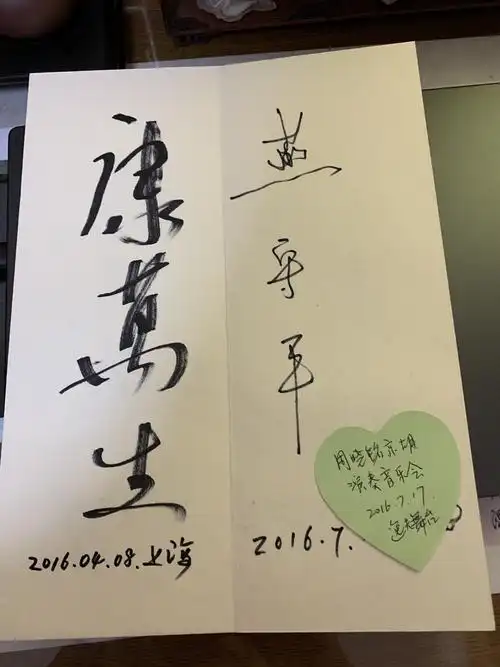 康萬生
2016.04.08.上海
燕守平
2016.7.
周晓铭京胡
演奏音乐会
2016.7.17.
逸夫舞台